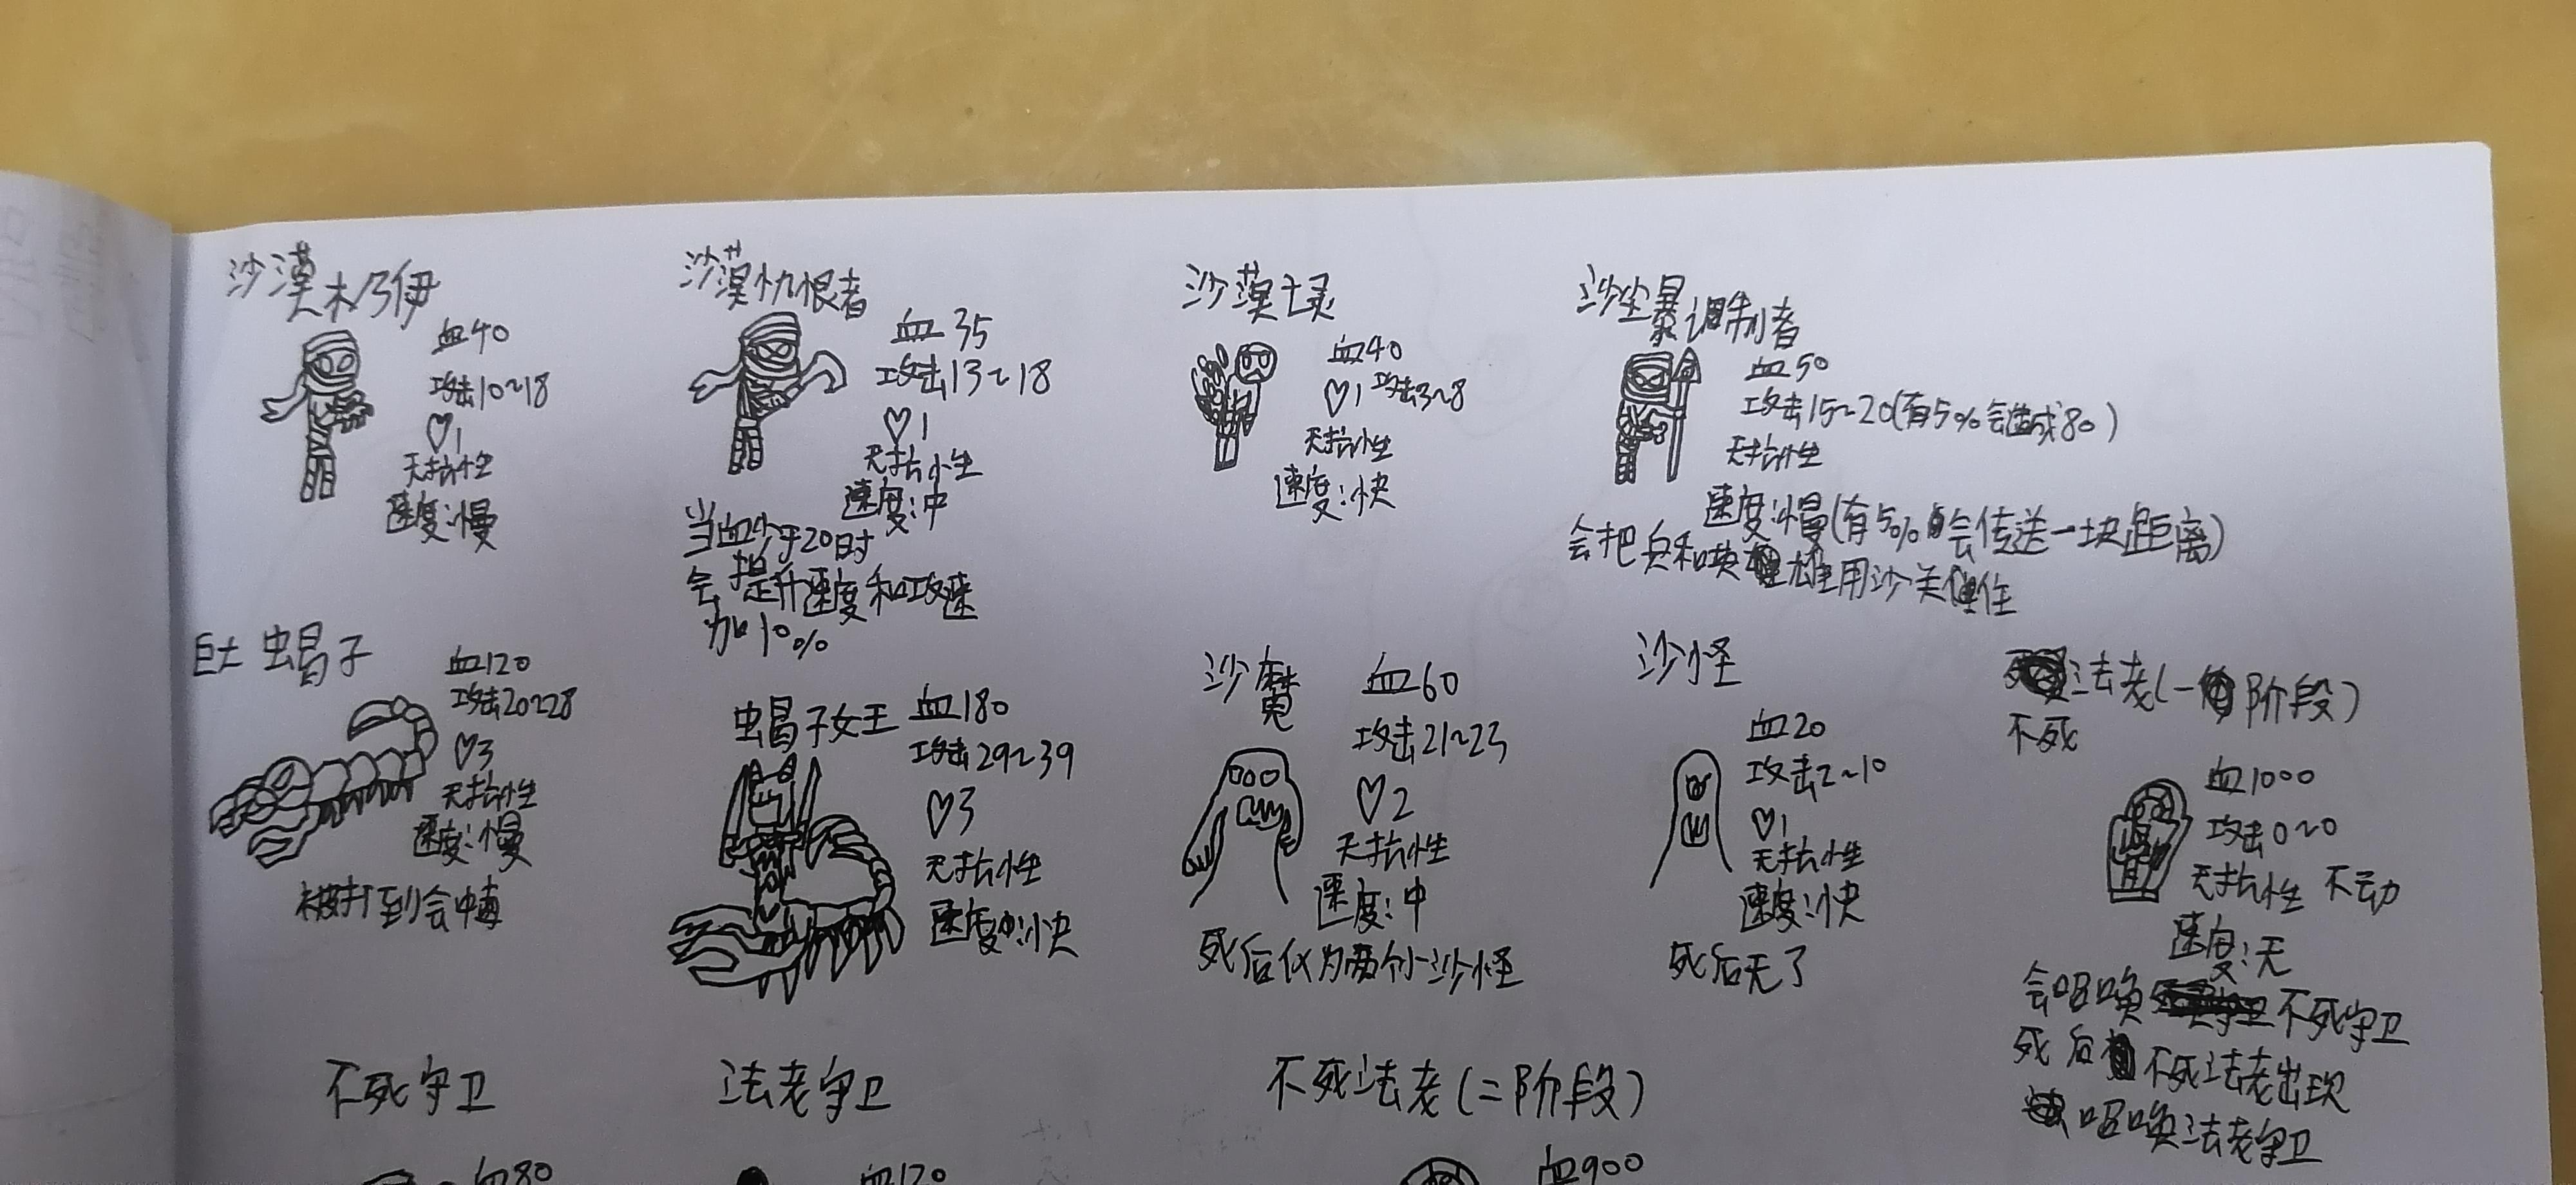 沙漠木乃伊
血40
攻击10~18
♡1
无抗性
速度:慢
沙漠仇恨者
血35
攻击13~18
♡1
无抗性
速度:中
当血少于20时
会提升速度和攻速
加10%
沙漠
血40
♡1 攻击3~8
无抗性
速度:快
沙尘暴调制者
血50
攻击15~20(有5%会造成80)
无抗性
速度:慢(有5%会传送一块距离)
会把兵和英雄用沙关住
蝎子
血120
攻击20~28
♡3
无抗性
速度:慢
被打到会中毒
蝎子女王
血180
攻击29~39
♡3
无抗性
速度:快
沙魔
血60
攻击21~23
♡2
无抗性
速度:中
死后化为两个小沙怪
沙怪
血20
攻击2~10
♡1
无抗性
速度:快
死后无了
法老(一阶段)
不死
血1000
攻击0~0
无抗性 不动
速度:无
会召唤不死守卫
死后不死法老出现
召唤法老守卫
不死守卫
血80
法老守卫
血120
不死法老(二阶段)
血900